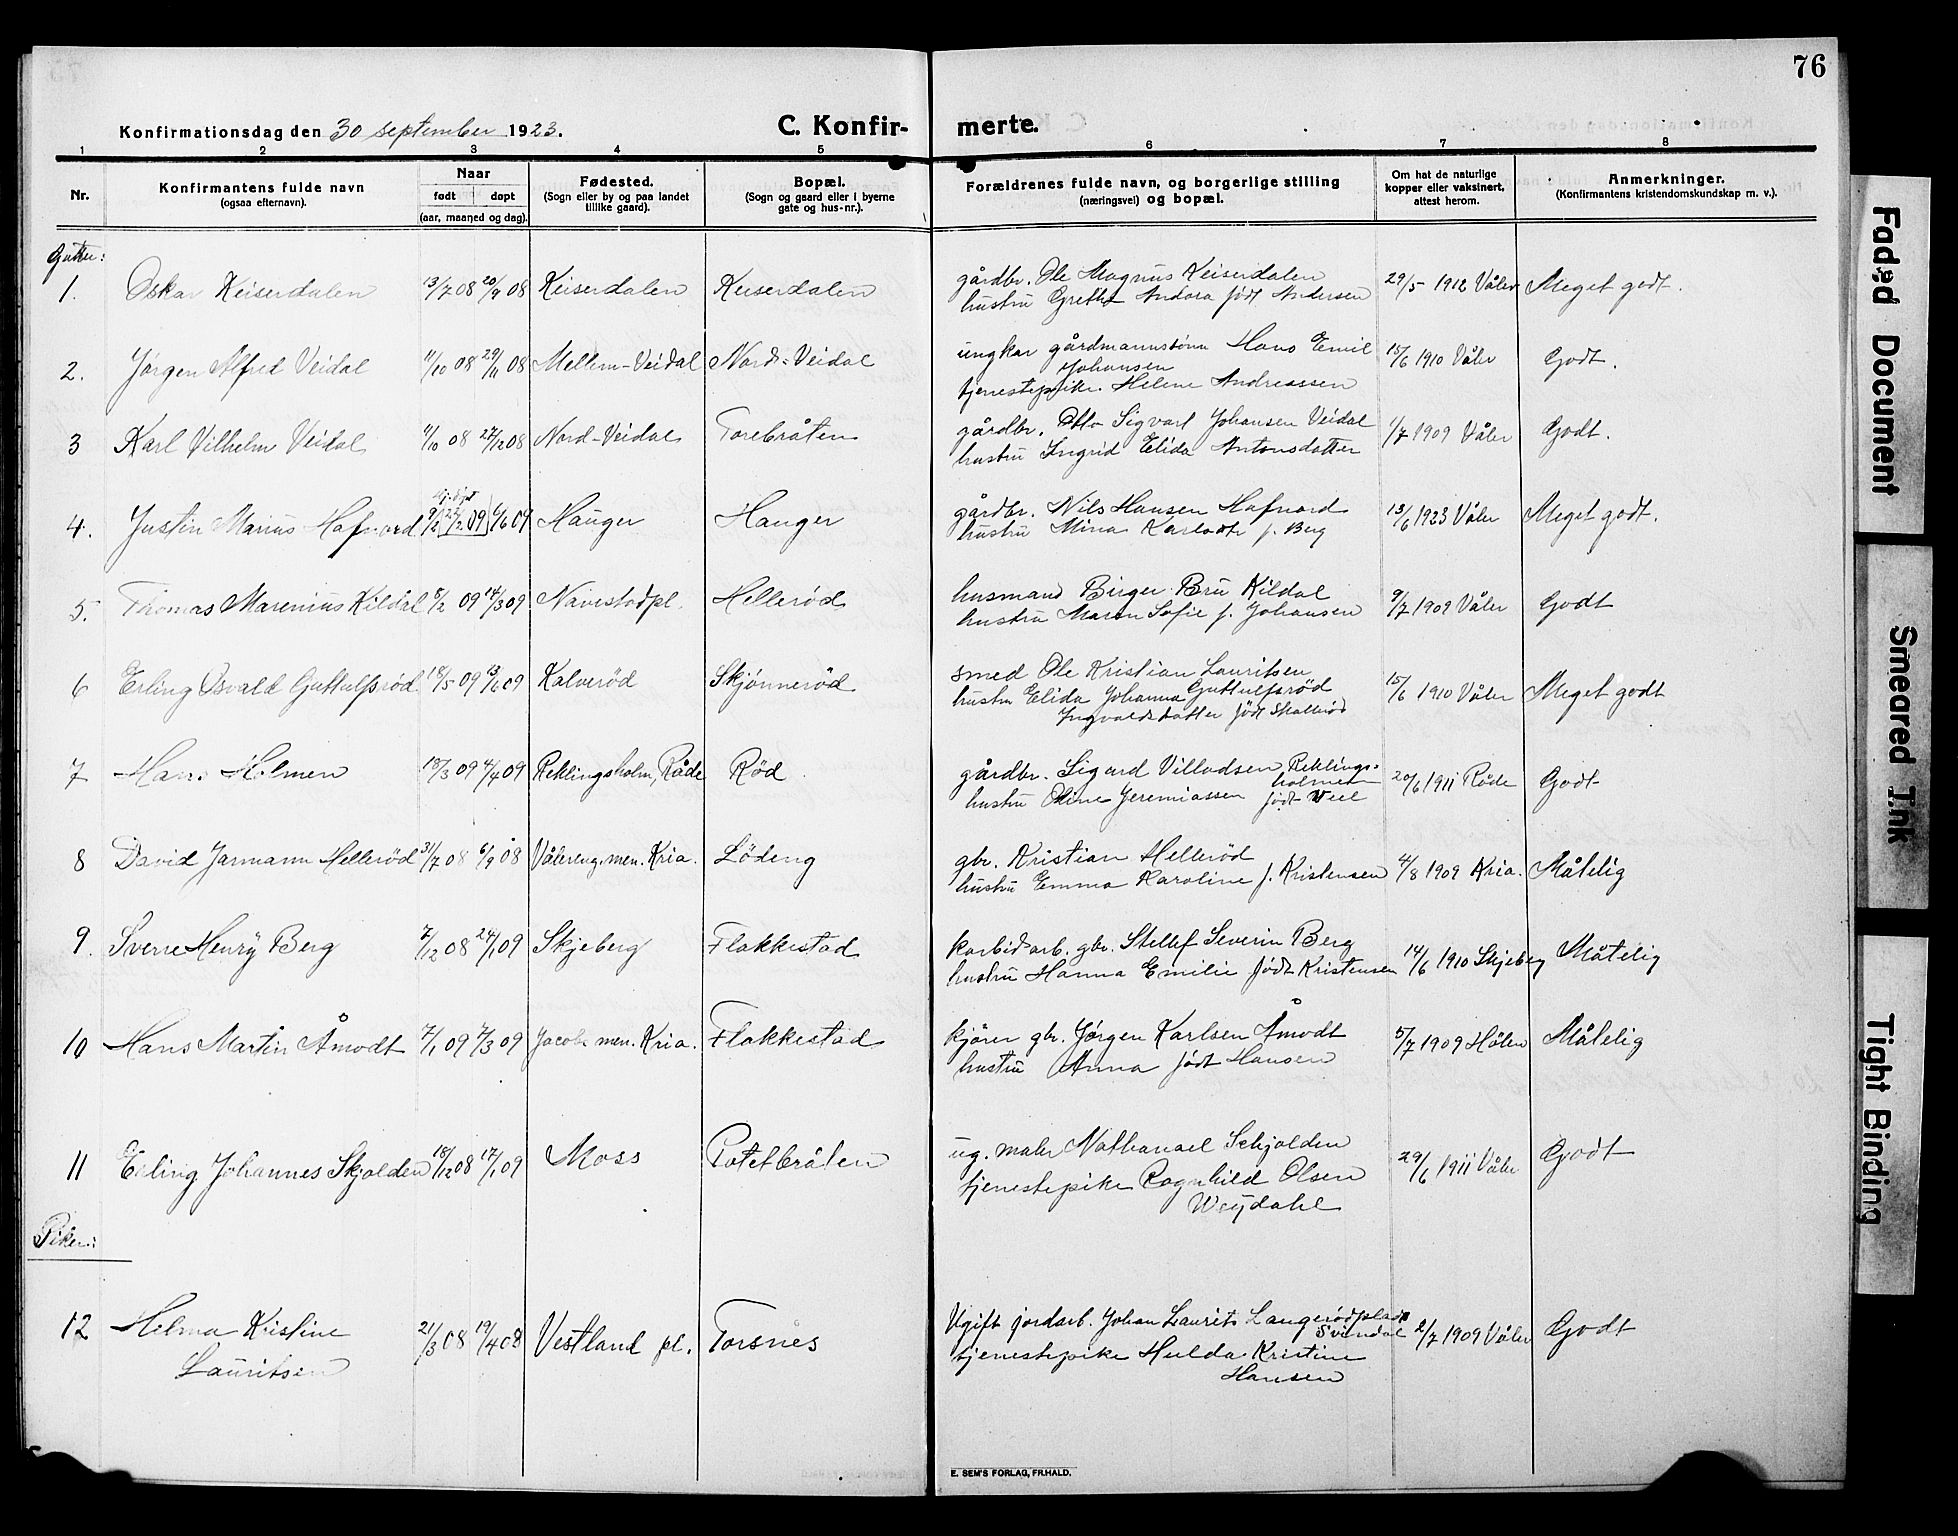 76
Konfirmationsdag den 30 september 1923.
C. Konfir- merte.
1 2 3 4 5 6 7 8
Nr.
Konfirmantens fulde navn
(ogsaa efternavn).
Naar
født døpt
(aar, maaned og dag).
Fødested.
(Sogn eller by og paa landet
tillike gaard).
Bopæl.
(Sogn og gaard eller i byerne
gate og hus-nr.).
Forældrenes fulde navn, og borgerlige stilling
(næringsvei) og bopæl.
Om hat de naturlige
kopper eller vaksinert,
attest herom.
Anmerkninger.
(Konfirmantens kristendomskundskap m. v.).
Gutter:
1. Oskar Keiserdalen 13/7 08 20/9 08 Keiserdalen Keiserdalen gårdbr. Ole Magnus Keiserdalen 29/5 1912 Våler Meget godt.
hustru Grethe Andora født Andersen
2. Jørgen Alfred Veidal 11/10 08 29/11 08 Mellem-Veidal Nord-Veidal ungkar gårdmannssønn Hans Emil 15/6 1910 Våler Godt.
Johansen
tjenestepike. Helene Andreassen
3 Karl Vilhelm Veidal 11/10 08 27/12 08 Nord-Veidal Torebråten gårdbr. Otto Sigvart Johansen Veidal 1/7 1909 Våler Godt.
hustru Ingrid Elida Antonsdatter
4. Justin Marius Hafnord 9/2 09 6/6 09 Hauger Hauger gårdbr. Nils Hansen Hafnord 13/6 1923 Våler Meget godt.
hustru Mina f. Berg
5. Thomas Marenius Kildal 8/2 09 14/3 09 Navestadpl. Hellerød husmand Birger Bru Kildal 9/7 1909 Våler Godt
hustru Maren Sofie f. Johansen
6 Erling Osvald Guttulfsrød 18/5 09 13/6 09 Kalverød Skjønnerød smed Ole Kristian Lauritsen 15/6 1910 Våler Meget godt
Guttulfsrød
hustru Elida Johanna
Ingvaldsdatter født Skallerød
7 Hans Holmen 18/3 09 4/4 09 Reklingsholm, Råde Rød gårdbr. Sigurd Villadsen Reklings- 20/6 1911 Råde Godt
holmen
hustru Oline Jeremiassen født Veel
8 David Jarmann Hellerød 31/7 08 6/9 08 Vålereng. men. Kria. Lødeng gbr. Kristian Hellerød 4/8 1909 Kria. Måtelig
hustru Emma Karoline f. Kristensen
9. Sverre Henry Berg 7/12 08 24/1 09 Skjeberg Flakkestad karbidarb. gbr. Stellef Severin Berg 14/6 1910 Skjeberg Måtelig
hustru Hanna Emilie født Kristensen
10 Hans Martin Åmodt 7/1 09 7/3 09 Jacobs men. Kria. Flakkestad kjører gbr. Jørgen Karlsen Åmodt 5/7 1909 Hølen Måtelig
hustru Anna født Hansen
11 Erling Johannes Skjolden 18/12 08 17/1 09 Moss Potetbråten ug. maler Nathanael Schjolden 29/6 1911 Våler Godt
tjenestepike Ragnhild Olsen
Weydahl
Piker:
12 Helma Kristine 21/3 08 19/4 08 Vestland pl. Torsnes Ugift jordarb. Johan Laurits Langerødplads 2/7 1909 Våler Godt
Svindal
Lauritsen tjenestepike Hulda Kristine
Hansen
E. SEM'S FORLAG, FR.HALD.
Faded Document
Smeared Ink
Tight Binding